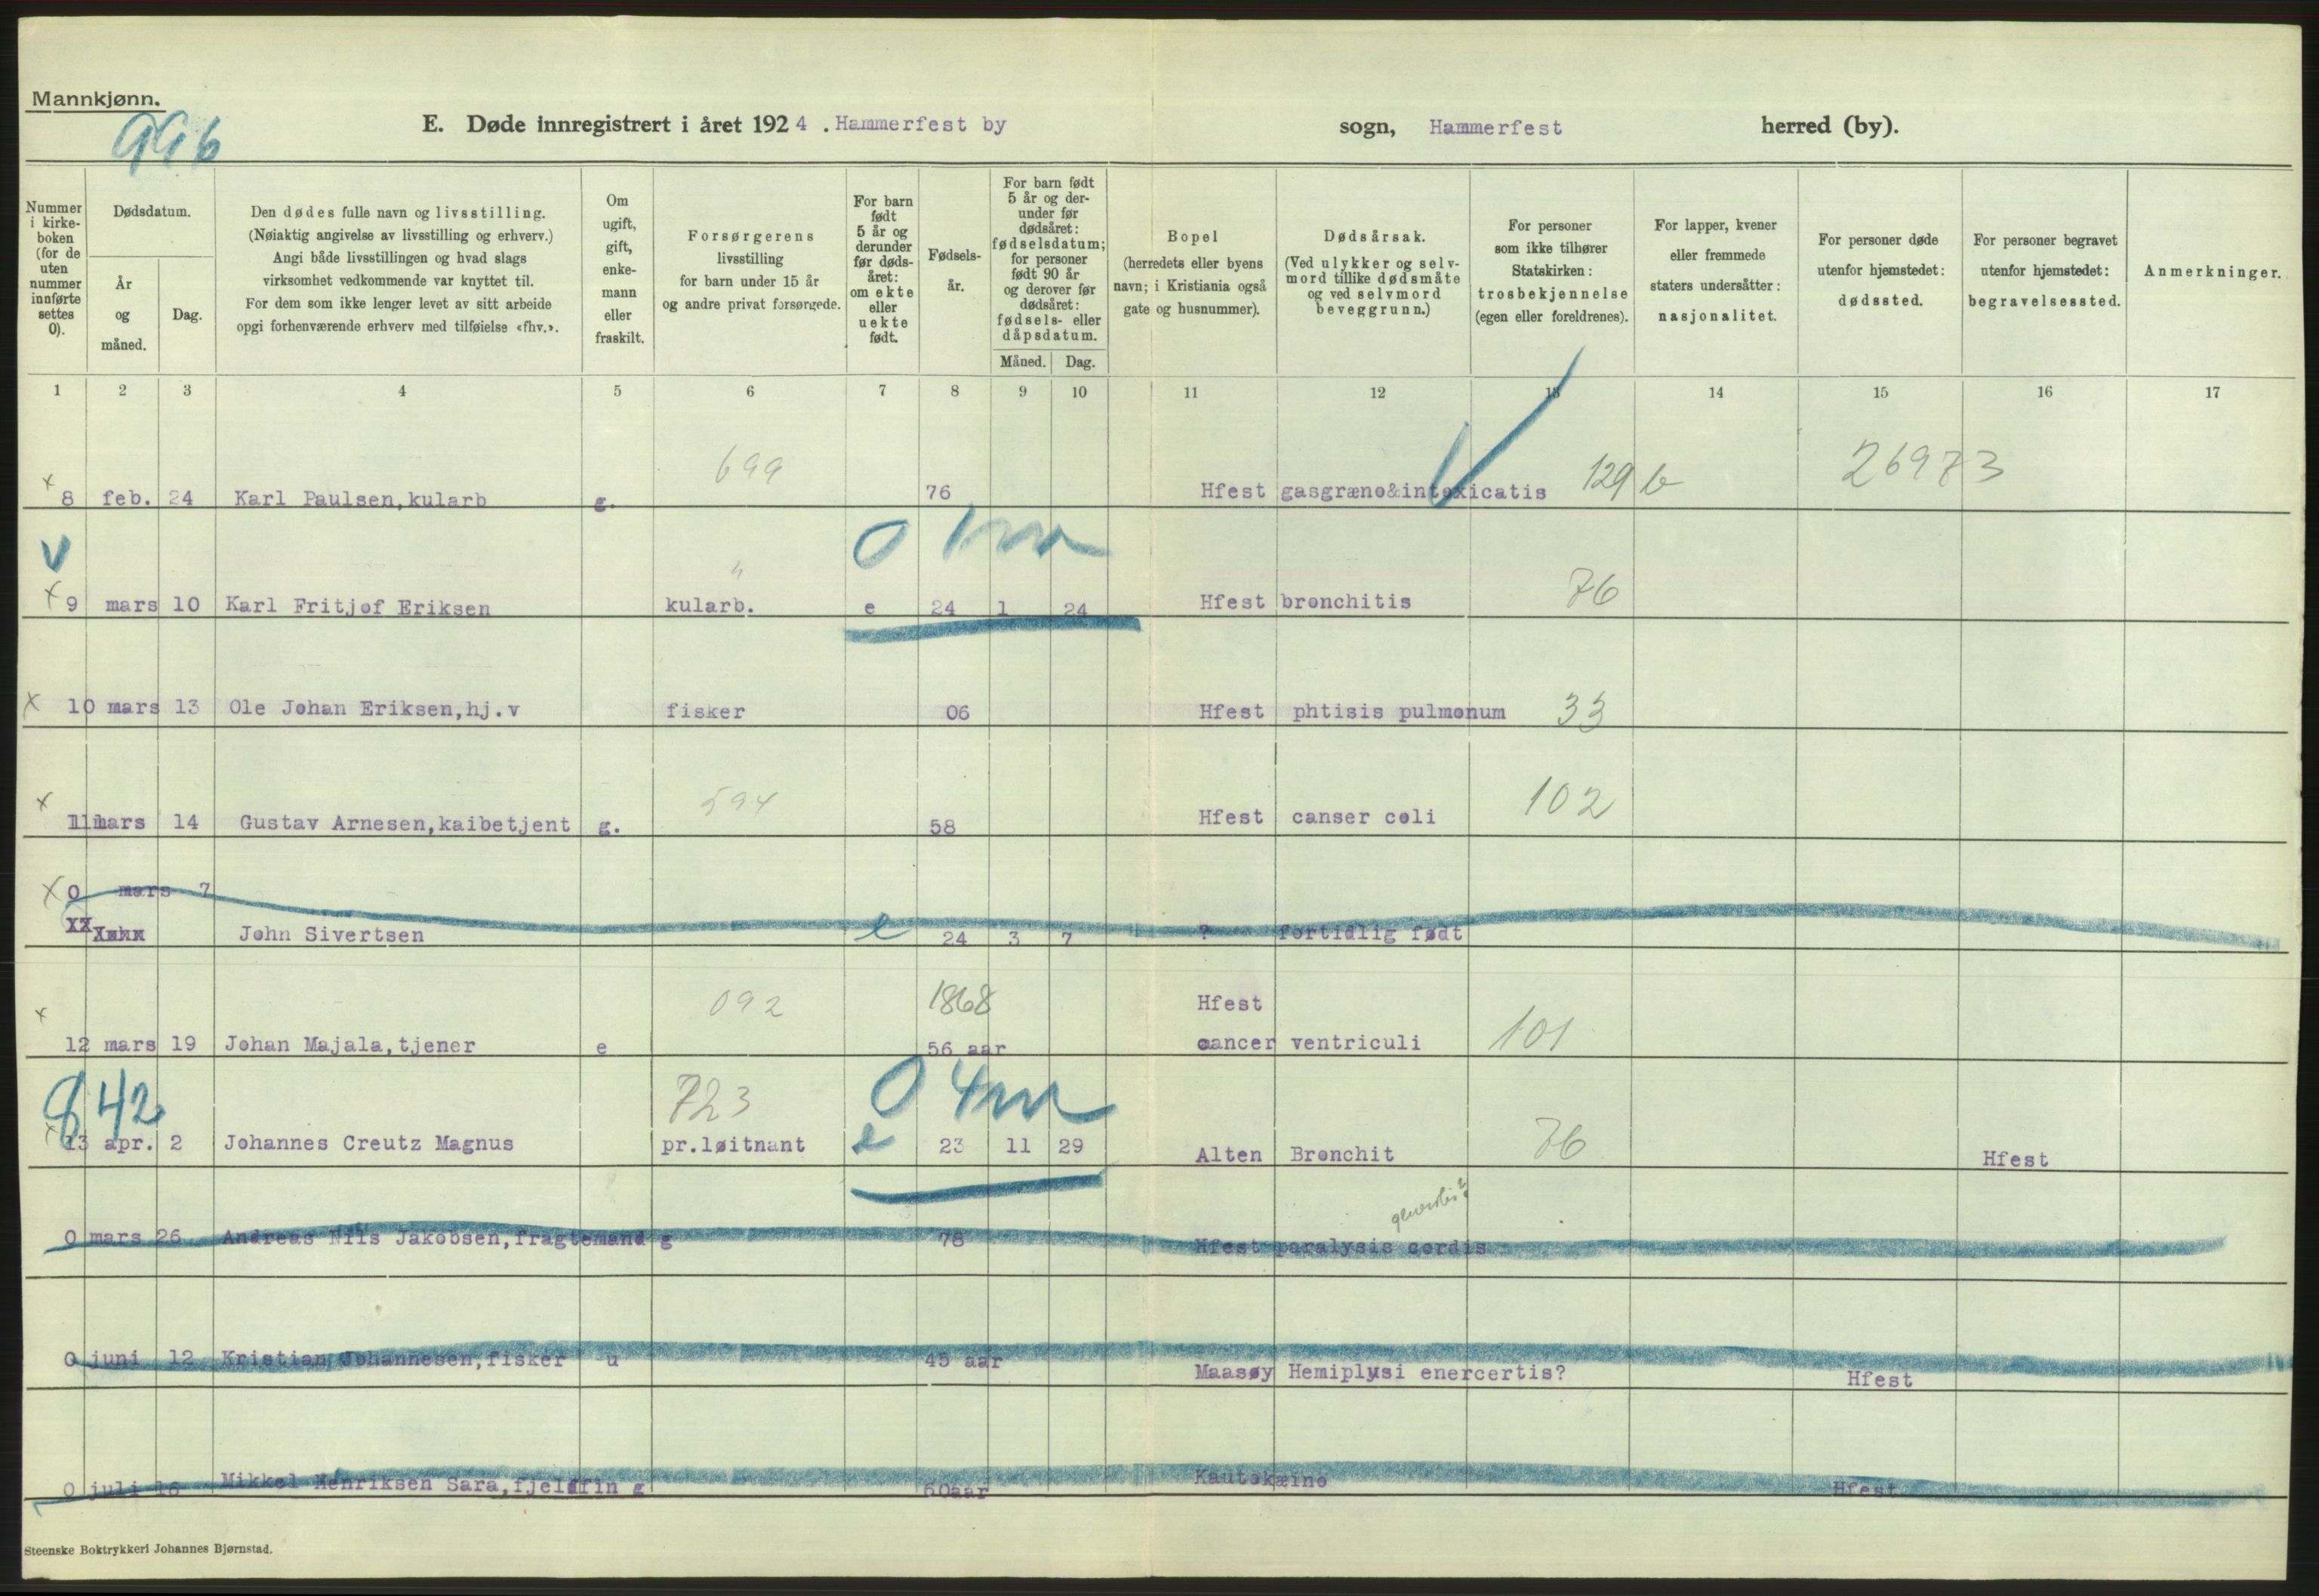 Mannkjønn.
996
E. Døde innregistrert i året 1924. Hammerfest by sogn, Hammerfest herred (by).
Nummer i kirke- boken (for de uten nummer innførte settes 0).
Dødsdatum.
År og måned.
Dag.
Den dødes fulle navn og livsstilling.
(Nøiaktig angivelse av livsstilling og erhverv.)
Angi både livsstillingen og hvad slags
virksomhet vedkommende var knyttet til.
For dem som ikke lenger levet av sitt arbeide
opgi forhenværende erhverv med tilføielse «fhv.».
Om ugift, gift, enke- mann eller fraskilt.
Forsørgerens
livsstilling
for barn under 15 år
og andre privat forsørgede.
For barn født 5 år og derunder før døds- året: om ekte eller uekte født.
Fødsels- år.
For barn født 5 år og der- under før dødsåret: fødselsdatum; for personer født 90 år og derover før dødsåret: fødsels- eller dåpsdatum.
Måned. Dag.
Bopel
(herredets eller byens
navn; i Kristiania også
gate og husnummer).
Dødsårsak.
(Ved ulykker og selv-
mord tillike dødsmåte
og ved selvmord
beveggrunn.)
For personer
som ikke tilhører
Statskirken:
trosbekjennelse
(egen eller foreldrenes).
For lapper, kvener
eller fremmede
staters undersåtter:
nasjonalitet.
For personer døde
utenfor hjemstedet:
dødssted.
For personer begravet
utenfor hjemstedet:
begravelsessted.
Anmerkninger.
1 2 3 4 5 6 7 8 9 10 11 12 13 14 15 16 17
699 129 b 26973
x 8 feb. 24 Karl Paulsen,kularb g. 76 Hfest gasgræno&intoxicatis
v 0 1 m
x 9 mars 10 Karl Fritjof Eriksen kularb. e 24 1 24 Hfest bronchitis 76
x 10 mars 13 Ole Johan Eriksen,hj.v fisker 06 Hfest phtisis pulmonum 33
594 102
x 11 mars 14 Gustav Arnesen,kaibetjent g. 58 Hfest canser coli
x 0 mars 7
John Sivertsen e 24 3 7 ? fortidlig født
092 1868 Hfest
x 12 mars 19 Johan Majala,tjener e 56 aar cancer ventriculi 101
842 723 0 4 m
x 13 apr. 2 Johannes Creutz Magnus pr.løitnant e 23 11 29 Alten Bronchit 76 Hfest
0 mars 26 Andreas Nils Jakobsen,fragtemand g 78 Hfest paralysis cordis
0 juni 12 Kristian Johannesen,fisker u 45 aar Maasøy Hemiplysi enercertis? Hfest
0 juli 16 Mikkel Henriksen Sara,fjeldfin g 60aar Kautokæino Hfest
Steenske Boktrykkeri Johannes Bjørnstad.